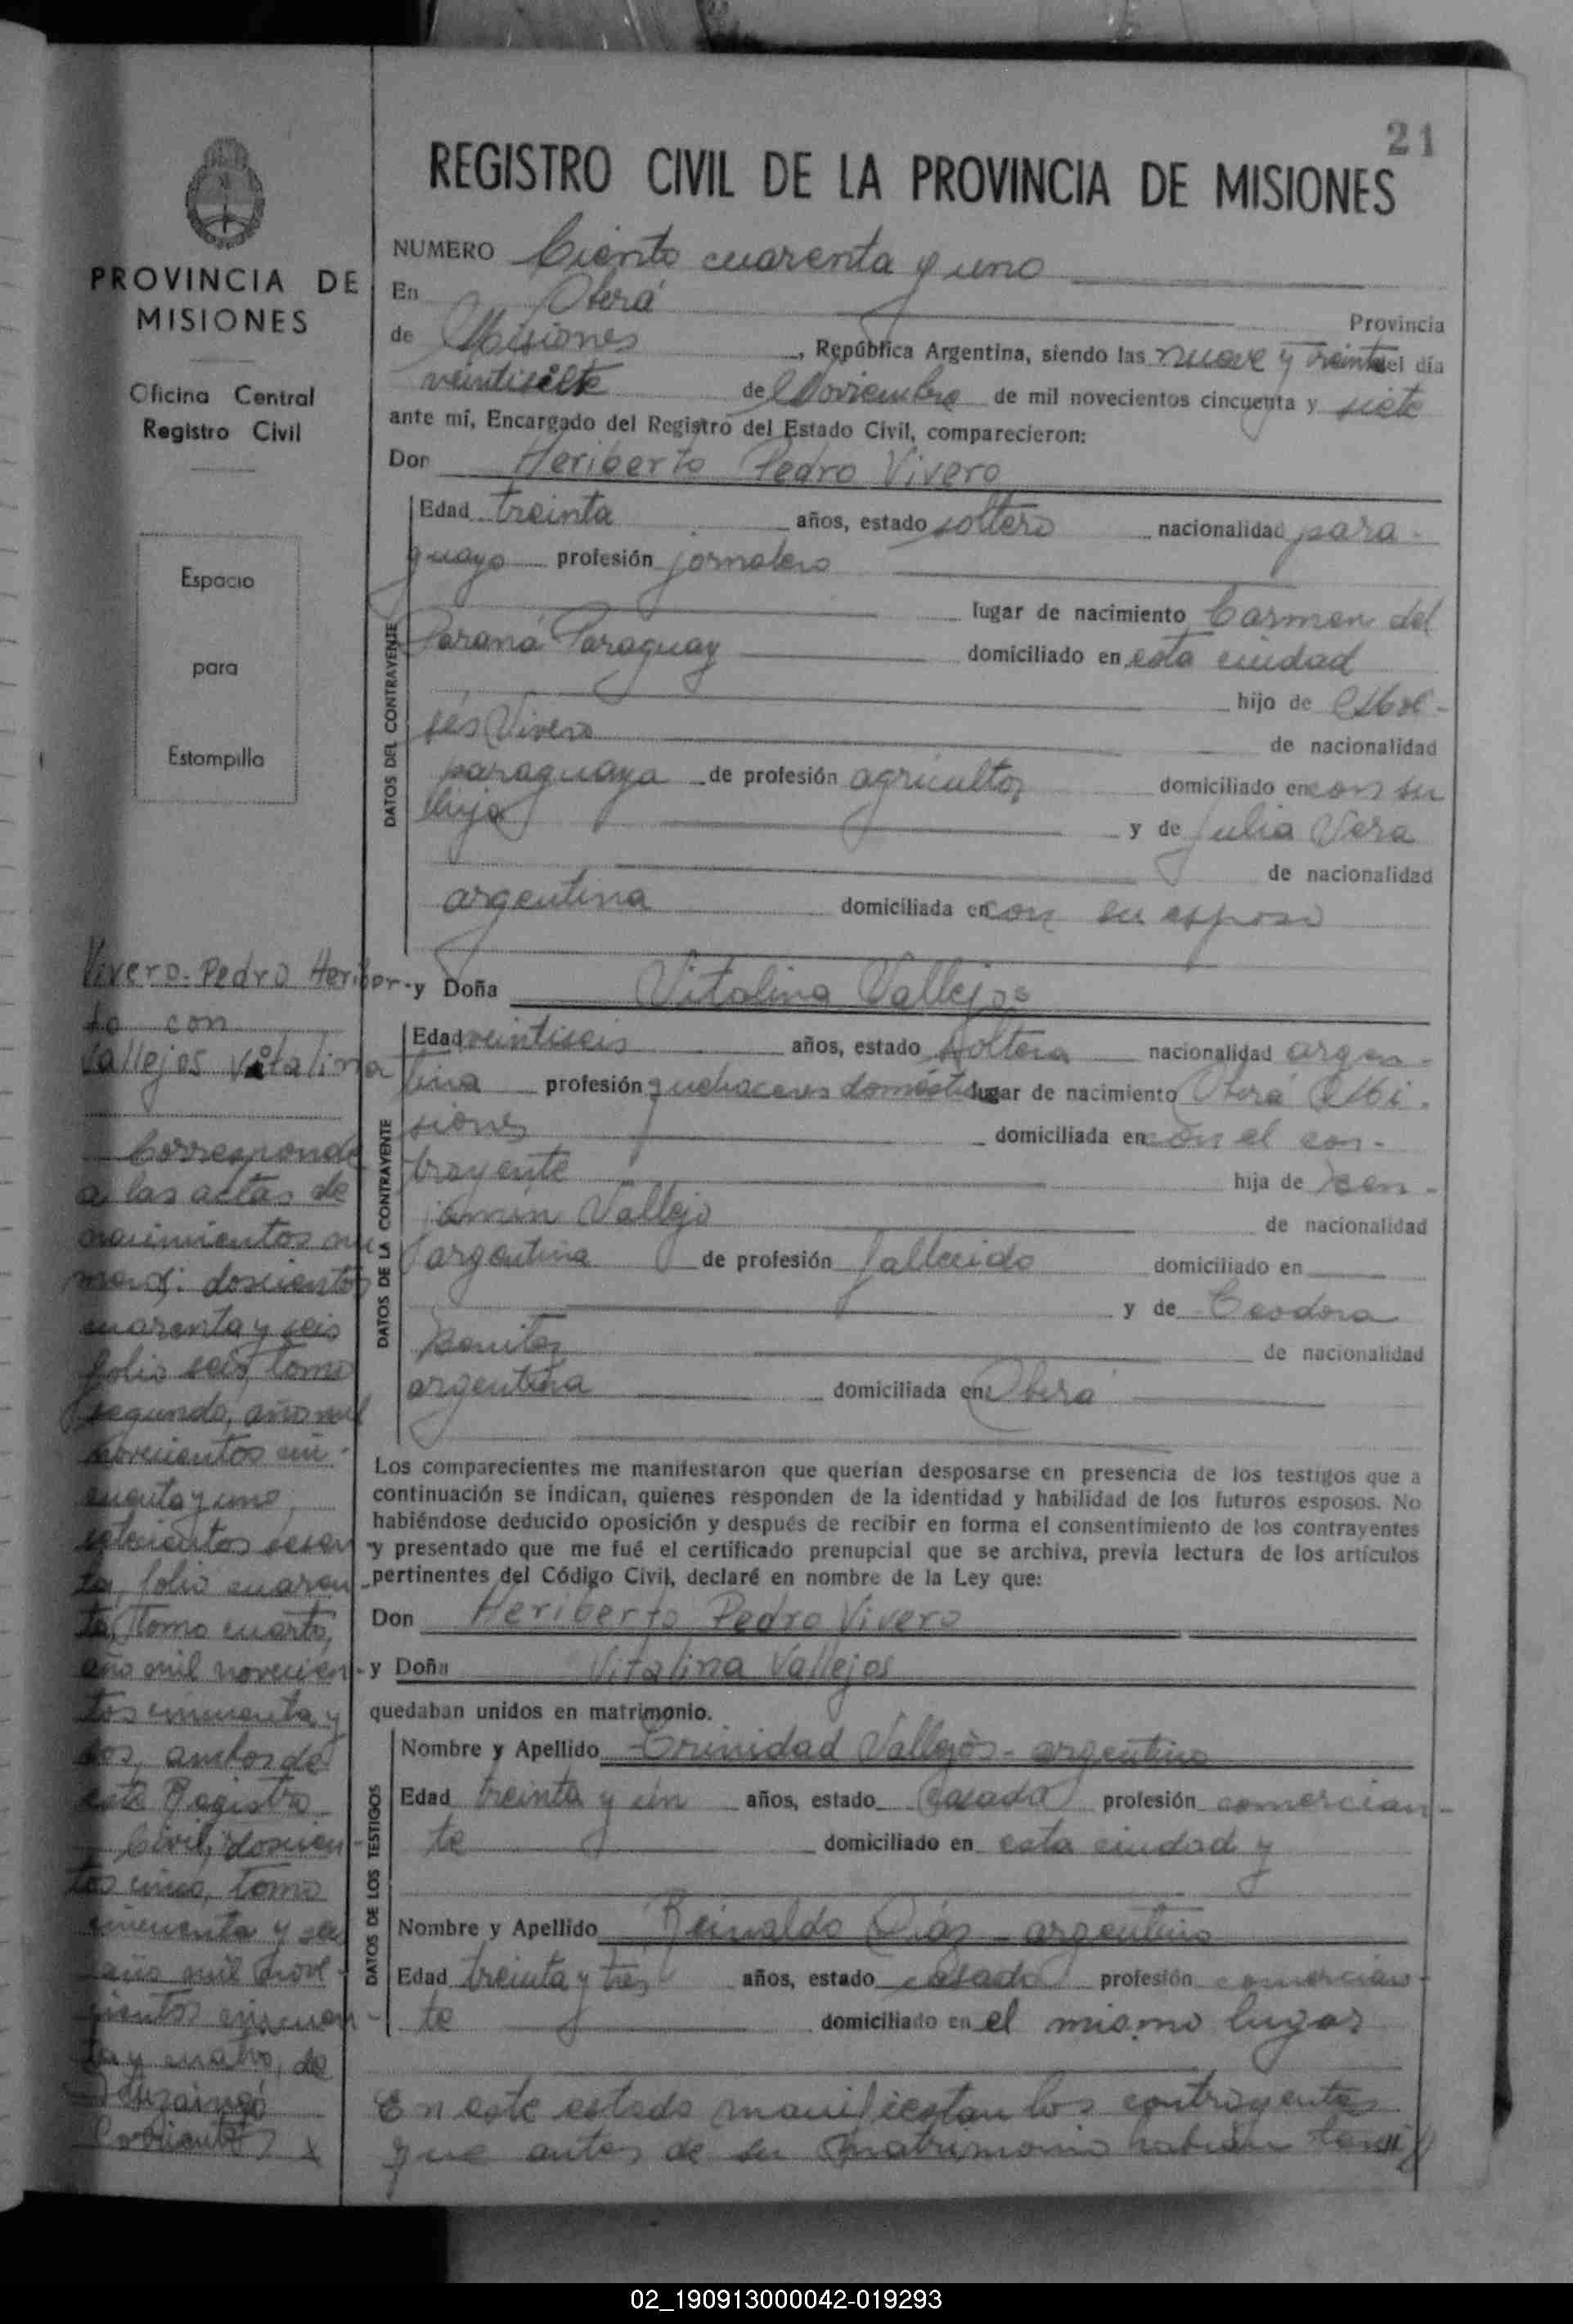 21
REGISTRO CIVIL DE LA PROVINCIA DE MISIONES
PROVINCIA DE
MISIONES
Oficina Central
Registro Civil
Espacio
para
Estampilla
NUMERO Ciento cuarenta y uno
En Oberá Provincia
de Misiones, República Argentina, siendo las nueve y treinta del día
veintisiete de Noviembre de mil novecientos cincuenta y siete
ante mí, Encargado del Registro del Estado Civil, comparecieron:
Don Heriberto Pedro Vivero
DATOS DEL CONTRAYENTE
Edad treinta años, estado soltero nacionalidad para-
guayo profesión jornalero
lugar de nacimiento Carmen del
Paraná Paraguay domiciliado en esta ciudad
hijo de Moi-
sés Vivero de nacionalidad
paraguaya de profesión agricultor domiciliado en con su
hijo y de Julia Vera
de nacionalidad
argentina domiciliada en con su esposo
Vivero-Pedro Heriber-
to con
Vallejos Vitalina
y Doña Vitalina Vallejos
DATOS DE LA CONTRAYENTE
Edad veintiseis años, estado soltera nacionalidad argen-
tina profesión quehaceres domésticos lugar de nacimiento Oberá Mi-
siones domiciliada en con el con-
trayente hija de Ben-
jamín Vallejo de nacionalidad
argentina de profesión fallecido domiciliado en
y de Teodora
Benitez de nacionalidad
argentina domiciliada en Oberá
Corresponde
a las actas de
nacimientos nu
meros: doscientos
cuarenta y seis
folio seis, tomo
segundo, año mil
novecientos cin-
cuenta y uno,
setecientos sesen
ta, folio cuaren
ta, tomo cuarto,
año mil novecien-
tos cincuenta y
dos, ambos de
este Registro
Civil, doscien-
tos cinco, tomo
cincuenta y seis
año mil nove-
cientos cincuen-
ta y cuatro, de
Ituzaingó
Corrientes x
Los comparecientes me manifestaron que querían desposarse en presencia de los testigos que a
continuación se indican, quienes responden de la identidad y habilidad de los futuros esposos. No
habiéndose deducido oposición y después de recibir en forma el consentimiento de los contrayentes
y presentado que me fué el certificado prenupcial que se archiva, previa lectura de los artículos
pertinentes del Código Civil, declaré en nombre de la Ley que:
Don Heriberto Pedro Vivero
y Doña Vitalina Vallejos
quedaban unidos en matrimonio.
DATOS DE LOS TESTIGOS
Nombre y Apellido Trinidad Vallejos - argentino
Edad treinta y un años, estado casado profesión comercian-
te domiciliado en esta ciudad y
Nombre y Apellido Reinaldo Diáz - argentino
Edad treinta y tres años, estado casado profesión comercian-
te domiciliado en el mismo lugar
En este estado manifiestan los contrayentes
que antes de su matrimonio habían
02_190913000042-019293